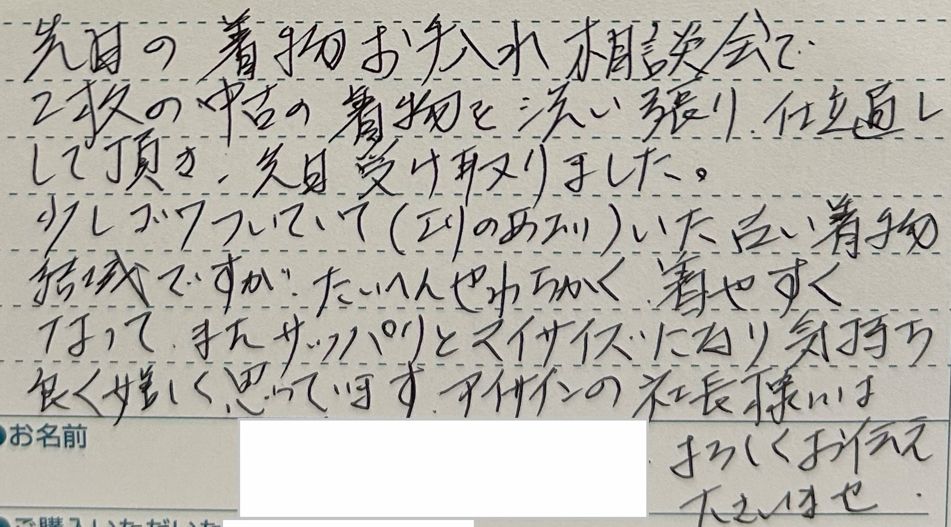 先日の着物お手入れ相談会で
2枚の中古の着物を洗い張り、仕立直し
して頂き、先日受け取りました。
少しゴワついていて(エリのあたり)いた古い着物
結城ですが、たいへんやわらかく、着やすく
なって、またサッパリとマイサイズになり気持ち
良く嬉しく思っています。アイサインの社長様には
●お名前
よろしくお伝え
下さいませ。
●ご購入いただいた